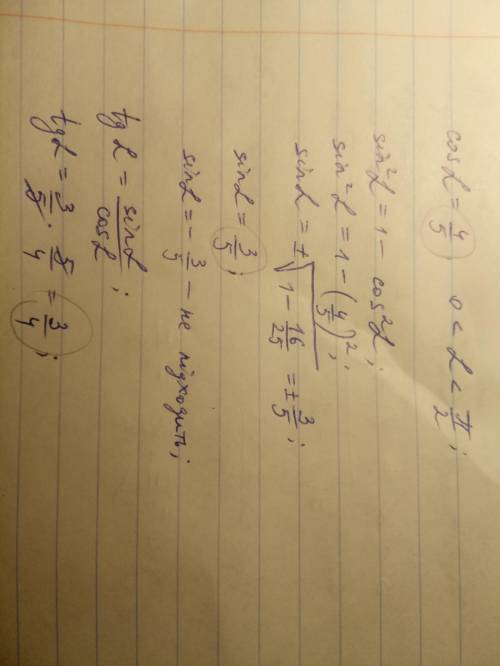 cosα = 4/5   0 < α < π/2;
sin²α = 1 - cos²α;
sin²α = 1 - (4/5)²;
sinα = ±√(1 - 16/25) = ± 3/5;
sinα = 3/5;
sinα = - 3/5 - не підходить;
tgα = sinα/cosα;
tgα = 3/5 · 5/4 = 3/4;